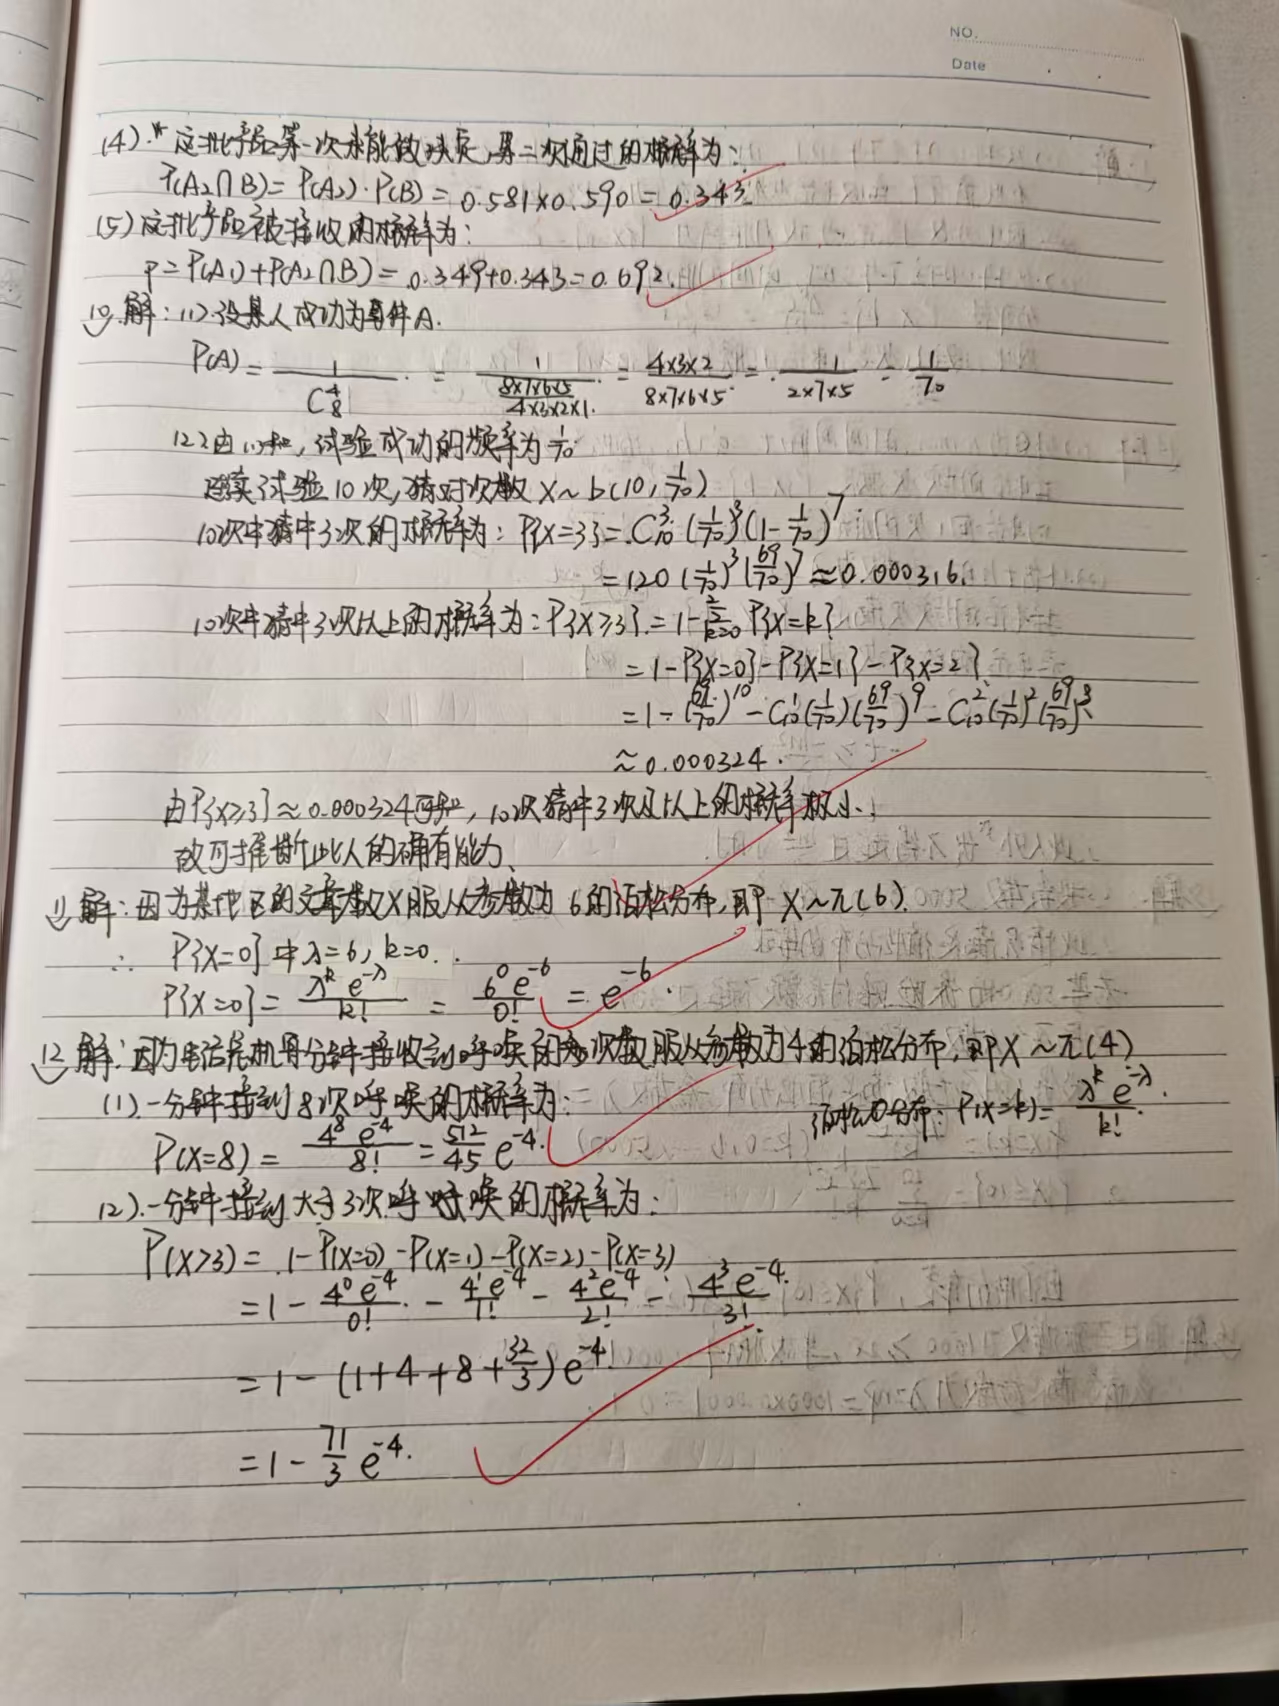 NO.
Date
(4).这批产品第一次未能做决定,第二次通过的概率为:
P(A₂∩B)=P(A₂)·P(B)=0.581×0.590=0.343.
(5)这批产品被接收的概率为:
P=P(A₁)+P(A₂∩B)=0.349+0.343=0.692.
10.解:(1).设某人成功为事件A.
P(A)=1/C₈⁴=1/((8×7×6×5)/(4×3×2×1))=(4×3×2)/(8×7×6×5)=1/(2×7×5)=1/70
(2)由(1)知,试验成功的频率为1/70.
连续试验10次,猜对次数X~b(10,1/70)
10次中猜中3次的概率为:P{X=3}=C₁₀³(1/70)³(1-1/70)⁷
=120(1/70)³(69/70)⁷≈0.000316.
10次中猜中3次以上的概率为:P{X≥3}=1-∑_{k=0}^{2}P{X=k}
=1-P{X=0}-P{X=1}-P{X=2}
=1-(69/70)¹⁰-C₁₀¹(1/70)(69/70)⁹-C₁₀²(1/70)²(69/70)⁸
≈0.000324.
由P{X≥3}≈0.000324可知,10次猜中3次及以上的概率极小,
故可推断此人的确有能力.
11.解:因为某地区的文章数X服从参数为6的泊松分布,即X~π(6).
∴P{X=0}中λ=6,k=0.
P{X=0}=λᵏe^{-λ}/k!=6⁰e⁻⁶/0!=e⁻⁶.
12.解:因为电话总机每分钟接收到呼唤的次数服从参数为4的泊松分布,即X~π(4)
(1).一分钟接到8次呼唤的概率为:
泊松分布:P(X=k)=λᵏe^{-λ}/k!.
P(X=8)=4⁸e⁻⁴/8!=512/45 e⁻⁴.
(2).一分钟接到大于3次呼唤的概率为:
P(X>3)=1-P(X=0)-P(X=1)-P(X=2)-P(X=3)
=1-4⁰e⁻⁴/0!-4¹e⁻⁴/1!-4²e⁻⁴/2!-4³e⁻⁴/3!.
=1-(1+4+8+32/3)e⁻⁴
=1-71/3 e⁻⁴.